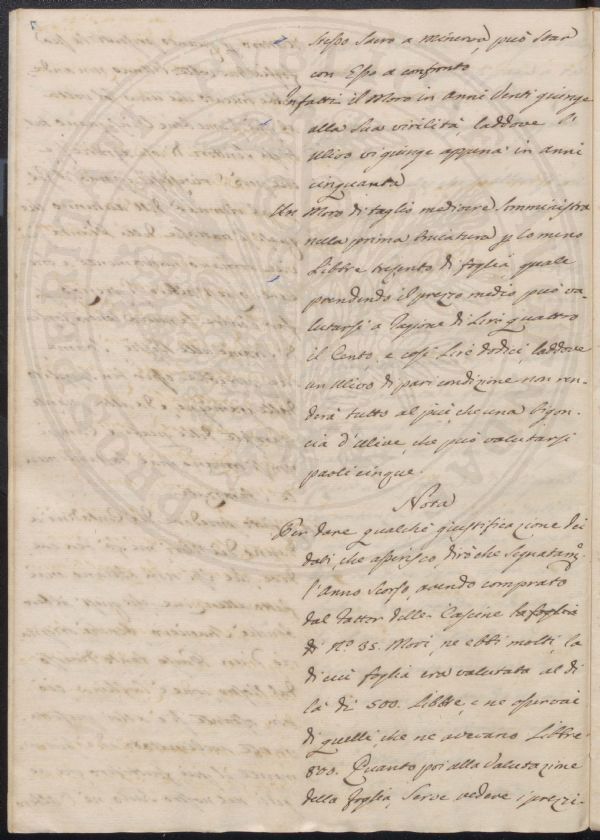 stesso Sacro a Minerva, può star
con Esso a confronto
Infatti il Moro in Anni Venti giunge
alla Sua virilità laddove l'
Ulivo vi giunge appena in anni
cinquanta
Un Moro di taglio mediocre Somministra
nella prima bruciatura p. lo meno
Libbre trecento di foglia, quale
prendendo il prezzo medio, può va-
lutarsi a ragione di Lire quattro
il Cento, e così Lire dodici, laddove
un Ulivo di pari condizione non ren-
derà tutto al più, che una bigon-
cia d'ulive, che può valutarsi
paoli cinque.
Nota
Per dare qualche giustificazione dei
dati, che asserisco, dirò che Segnatam.
l'Anno Scorso avendo comprato
dal Fattor delle Cascine la foglia
di N° 35. Mori, ne ebbi molti, la
di cui foglia era valutata al di
là di 500. Libbre, e ne osservai
di quelli, che ne avevano Libbre
800. Quanto poi alla Valutazione
della foglia, Serve vedere i prezzi-